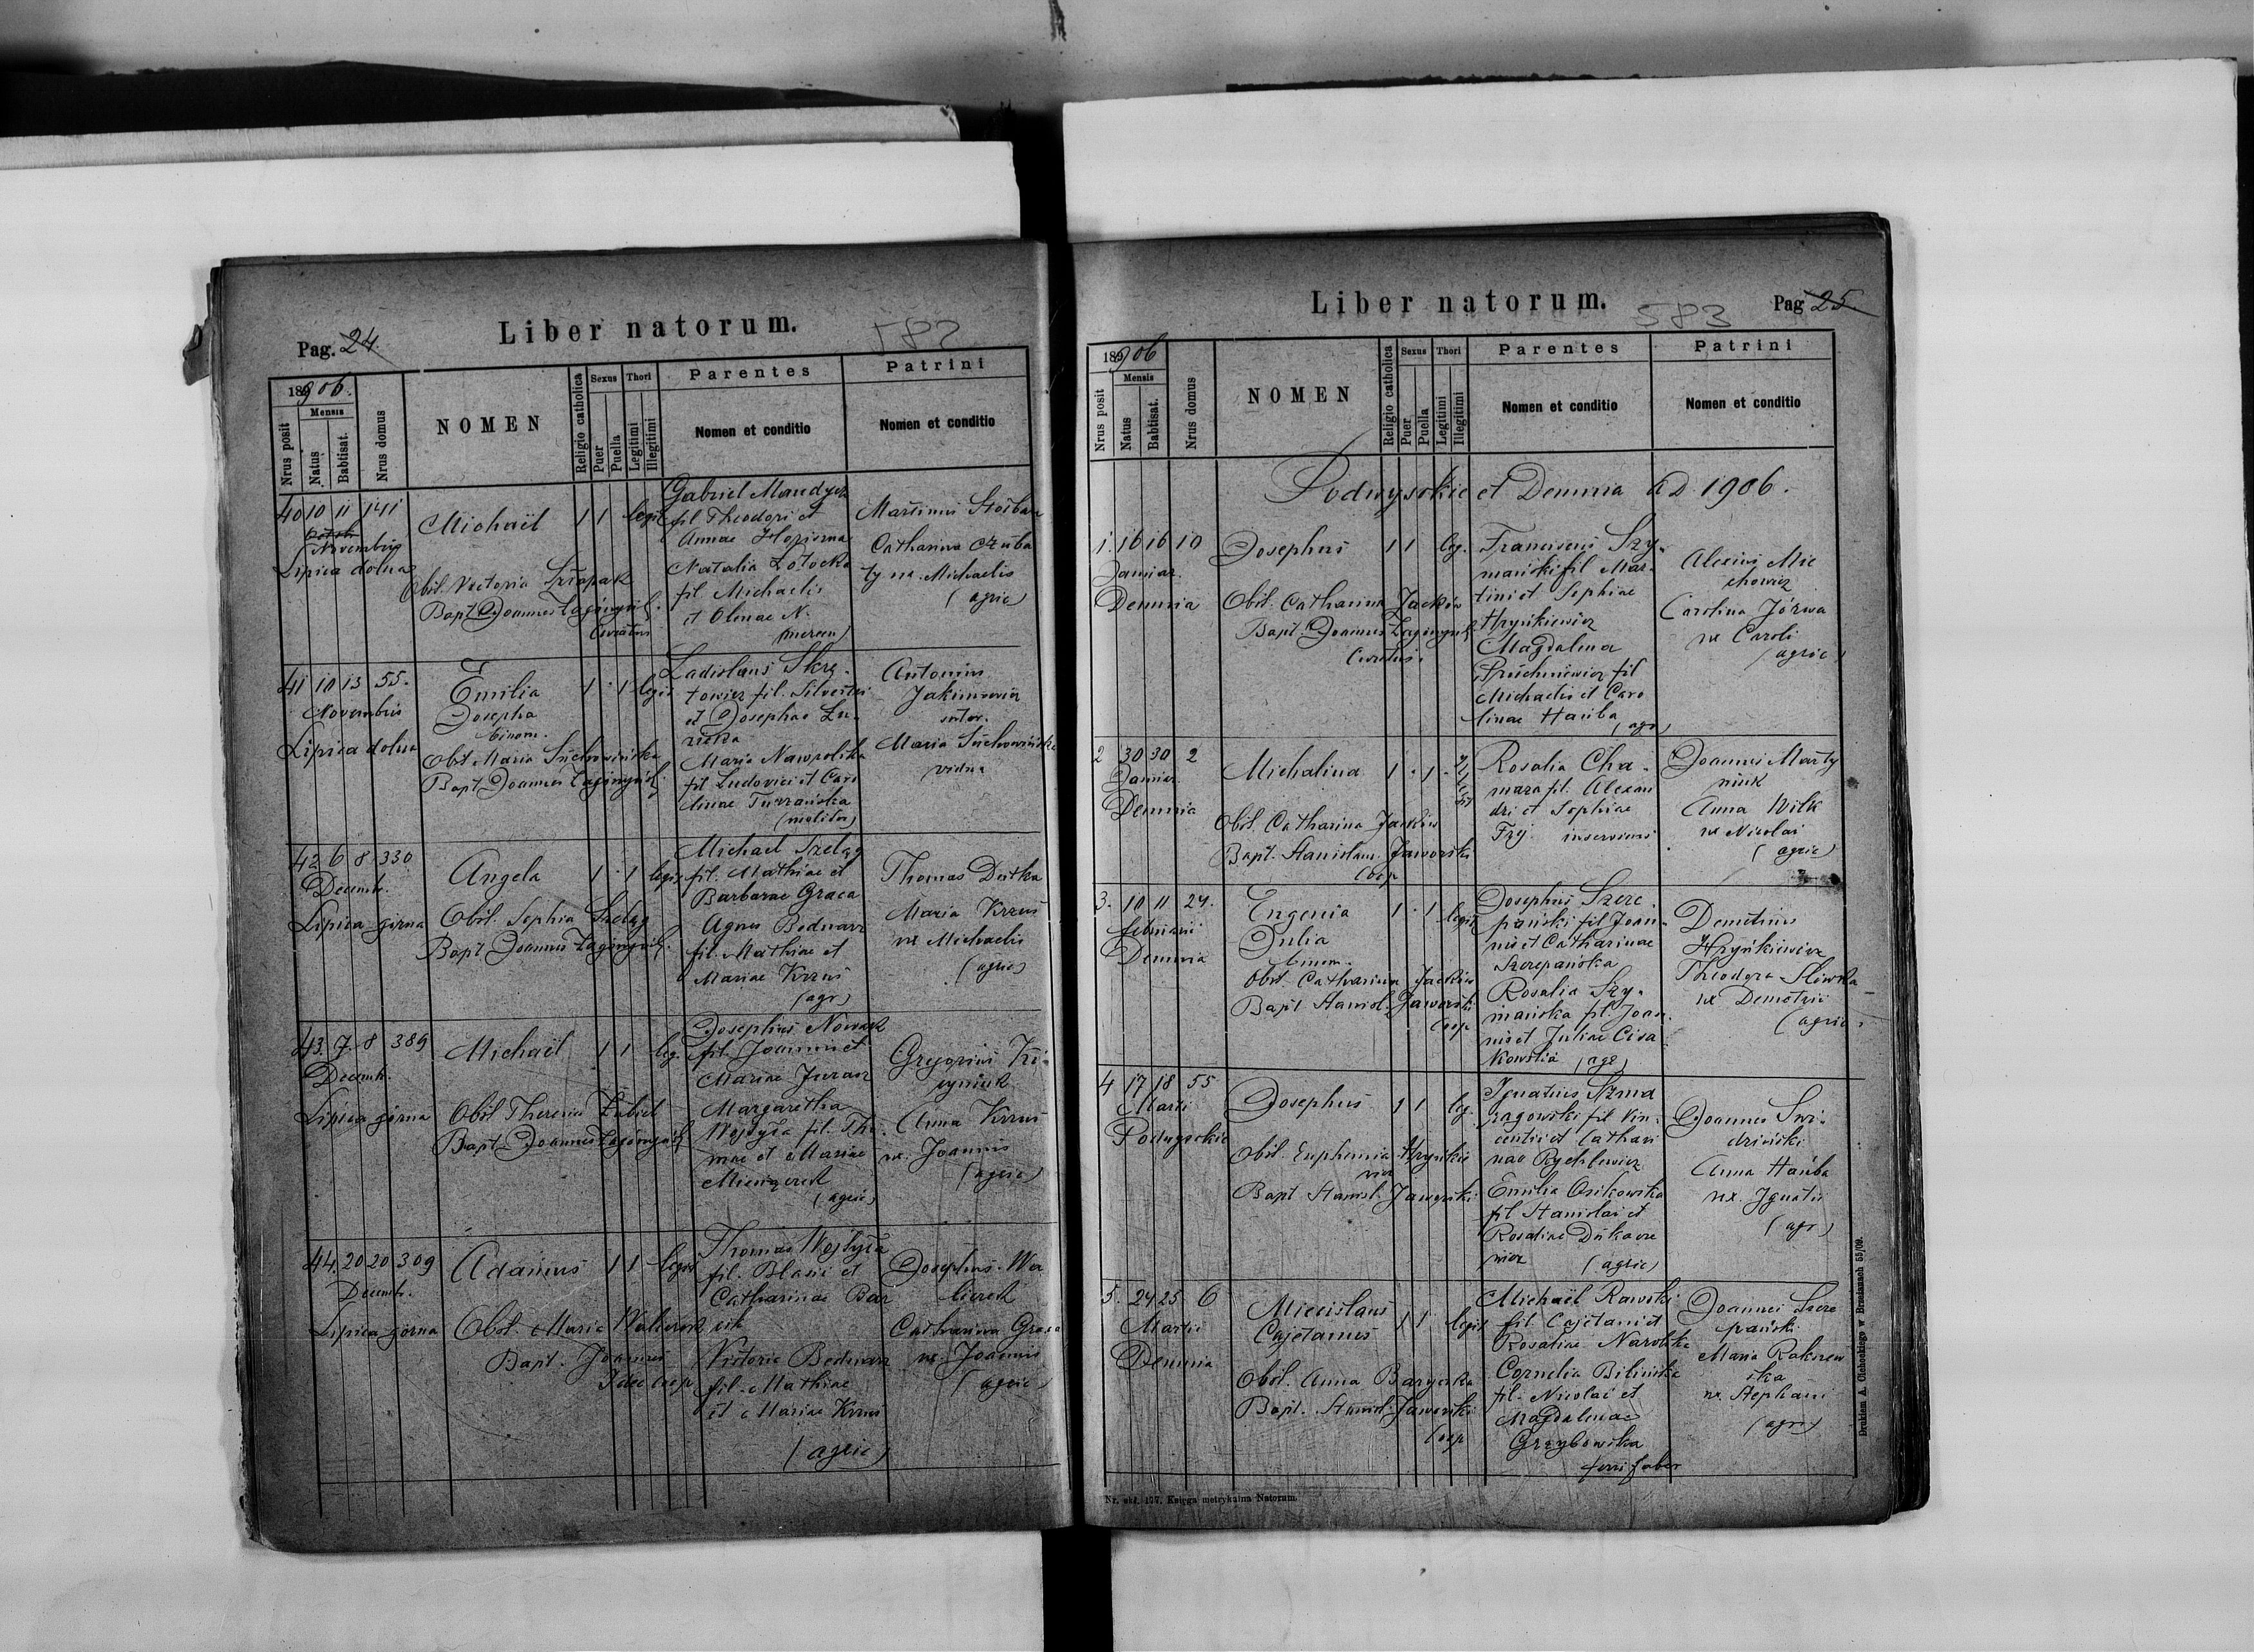 Pag. 24.
Liber natorum.
582
1906.
Nrus posit
Mensis
Natus
Babtisat.
Nrus domus
NOMEN
Religio catholica
Sexus
Puer
Puella
Thori
Legitimi
Illegitimi
Parentes
Nomen et conditio
Patrini
Nomen et conditio
40 10 11 141
Novembris
Lipica dolna
Michaël
1 1 legit
Obst. Victoria
Bapt. Joannes
Gabriel
fil Theodori et
Annae
Natalia Łotocka
fil Michaelis
et Olenae N.
Martinus
Catharina Czuba
ty ux. Michaelis
(agric)
41 10 13 55.
Novembris
Lipica dolna
Emilia
Josepha
binom.
1 1 legit
Obst. Maria Suchowińska
Bapt. Joannes
Ladislaus Skrę-
towicz fil. Silvestri
et Josephae
Maria
fil Ludovici et Caro
linae Turzańska
(molitor)
Antonius
Jakimowicz
sutor.
Maria Suchowińska
vidua
42 6 8 330
Decemb.
Lipica górna
Angela
1 1 legit
Obst. Sophia Szeląg
Bapt. Joannes
Michael Szeląg
fil. Mathiae et
Barbarae Graca
Agnes Bednarz
fil. Mathiae et
Mariae Krzuś
(agr)
Thomas Dutka
Maria Krzuś
ux Michaelis
(agric)
43. 7 8 389
Decemb.
Lipica górna
Michaël
1 1 leg.
Obst. Theresia
Bapt. Joannes
Josephus Nowak
fil. Joannis et
Mariae
Margaretha
Wojtyła fil. Tho-
mae et Mariae
(agric)
Gregorius
Anna Krzuś
ux. Joannis
(agric)
44. 20 20 309
Decemb.
Lipica górna
Adamus
1 1 legit
Obst. Maria
Bapt. Joannes
Thomas Wojtyła
fil. Blasii et
Catharinae Bar
Victoria Bednarz
fil. Mathiae
et Mariae Krzuś
(agric)
Josephus
Catharina Graca
ux. Joannis
(agric)
Liber natorum.
583
Pag 25
1906
Nrus posit
Mensis
Natus
Babtisat.
Nrus domus
NOMEN
Religio catholica
Sexus
Puer
Puella
Thori
Legitimi
Illegitimi
Parentes
Nomen et conditio
Patrini
Nomen et conditio
Podwysokie et Demnia AD 1906.
1. 16 16 10
Januar.
Demnia
Josephus
1 1 leg.
Obst. Catharina Jacków
Bapt. Joannes
Franciscus Szy-
mański fil Mar-
tini et Sophiae
Hryńkiewicz
Magdalena
fil
Michaelis et Caro
linae Hańba
(agr)
Alexius Mic
howicz
Carolina Józwa
ux Caroli
(agric)
2 30 30 2
Januar.
Demnia
Michalina
1 1
Obst. Catharina Jacków
Bapt. Stanislaus Jaworski
Coop
Rosalia Cha-
mara fil. Alexan
dri et Sophiae
inserviens
Joannes Marty
niuk
Anna Wilk
ux Nicolai
(agric)
3. 10 11 24.
februarii
Demnia
Eugenia
Julia
binom.
1 1 legit
Obst. Catharina Jacków
Bapt Stanisl. Jaworski
Coop
Josephus Szcze-
pański fil Joan-
nis et Catharinae
Szczepańska
Rosalia Szy-
mańska fil. Joan-
nis et Juliae
(agr)
Demetrius
Hryńkiewicz
Theodora Śliwska
ux Demetrii
(agric)
4 17 18 55
Martii
Podwysokie
Josephus
1 1 leg.
Obst. Euphemia Hryńkie
wicz
Bapt Stanisl. Jaworski
Ignatius Szma
ragowski fil Vin-
centii et Cathari
nae Rychlewicz
Emilia Osikowska
fil Stanislai et
Rosaliae
(agric)
Joannes Świ-
driński
Anna Hańba
ux. Ignatii
(agr)
5. 24 25 6
Martii
Demnia
Miecislaus
Cajetanus
1 1 legit
Obst. Anna Barycka
Bapt. Stanisl. Jaworski
Coop
Michaël Rawski
fil Cajetani et
Rosaliae
Cornelia Bilińska
fil. Nicolai et
Magdalenae
Grzybowska
ferrifaber
Joannes Szcze
pański
Maria
ux. Stephani
(agr)
Nr. skł. 107. Księga metrykalna Natorum.